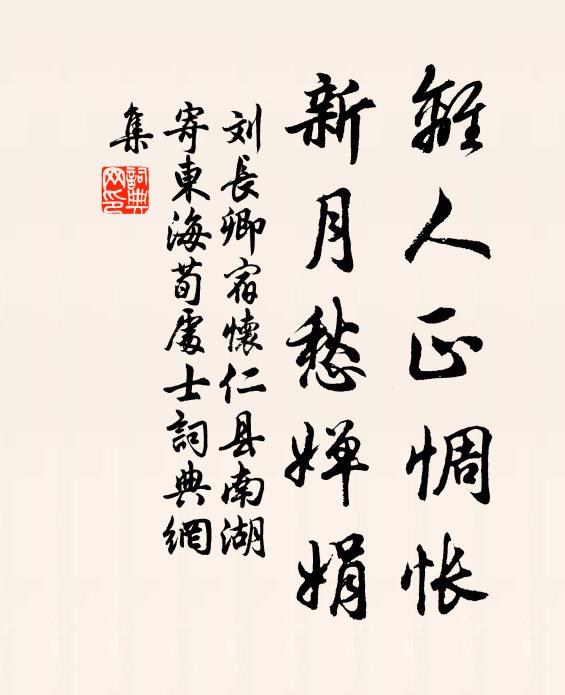 離人正惆怅
新月愁婵娟
刘長卿宿懷仁县南湖
寄東海荀處士詞典網
集
詞典
网印